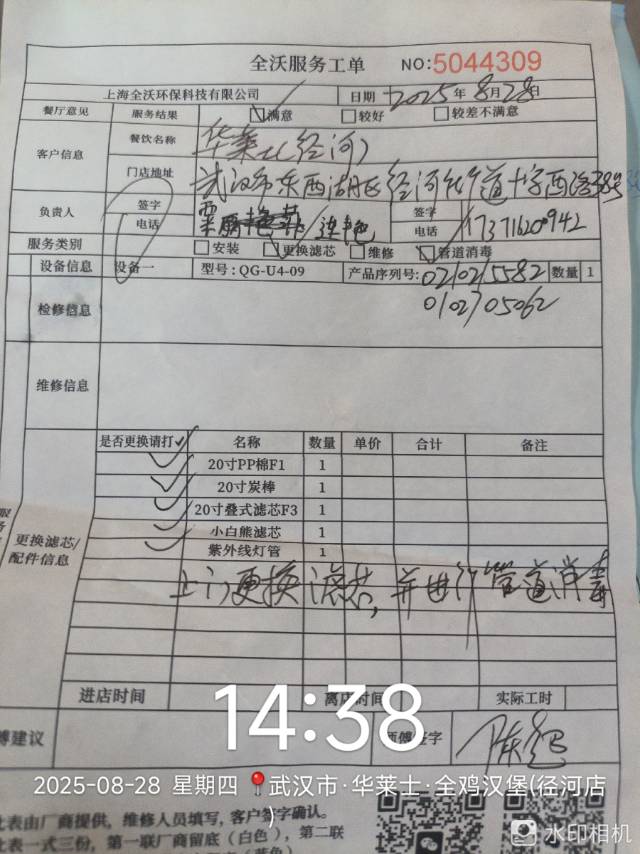 全沃服务工单 NO:5044309
上海全沃环保科技有限公司 日期 2025年8月28日
餐厅意见 服务结果 满意 较好 较差不满意
客户信息 餐饮名称 华莱士(径河)
门店地址 武汉市东西湖区径河街道十字西路
负责人 签字 签字
电话 电话 17371620942
服务类别 安装 更换滤芯 维修 管道消毒
设备信息 设备一 型号:QG-U4-09 产品序列号:0210215582 数量 1
0102705062
检修信息
维修信息
是否更换请打✓ 名称 数量 单价 合计 备注
✓ 20寸PP棉F1 1
✓ 20寸炭棒 1
✓ 20寸叠式滤芯F3 1
✓ 小白熊滤芯 1
✓ 紫外线灯管 1
更换滤芯/
配件信息
上门更换滤芯,并进行管道消毒
进店时间 离店时间 实际工时
14:38
傅建议 师傅签字
2025-08-28 星期四 武汉市·华莱士·全鸡汉堡(径河店
)
此表由厂商提供，维修人员填写，客户签字确认。
此表一式三份，第一联厂商留底（白色），第二联
水印相机